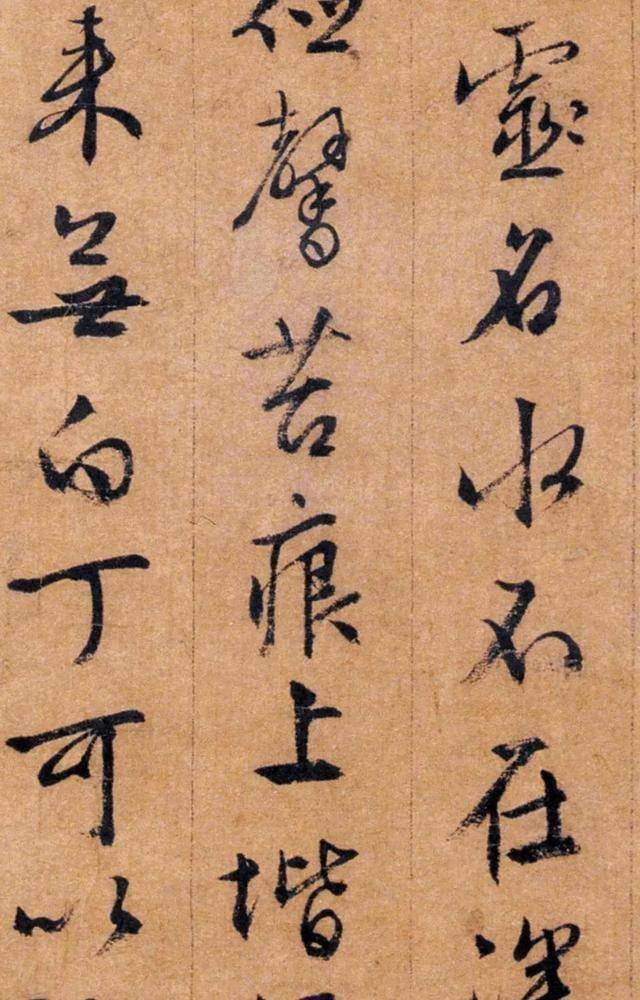 靈名水不在深
德馨苔痕上堦
来無白丁可以